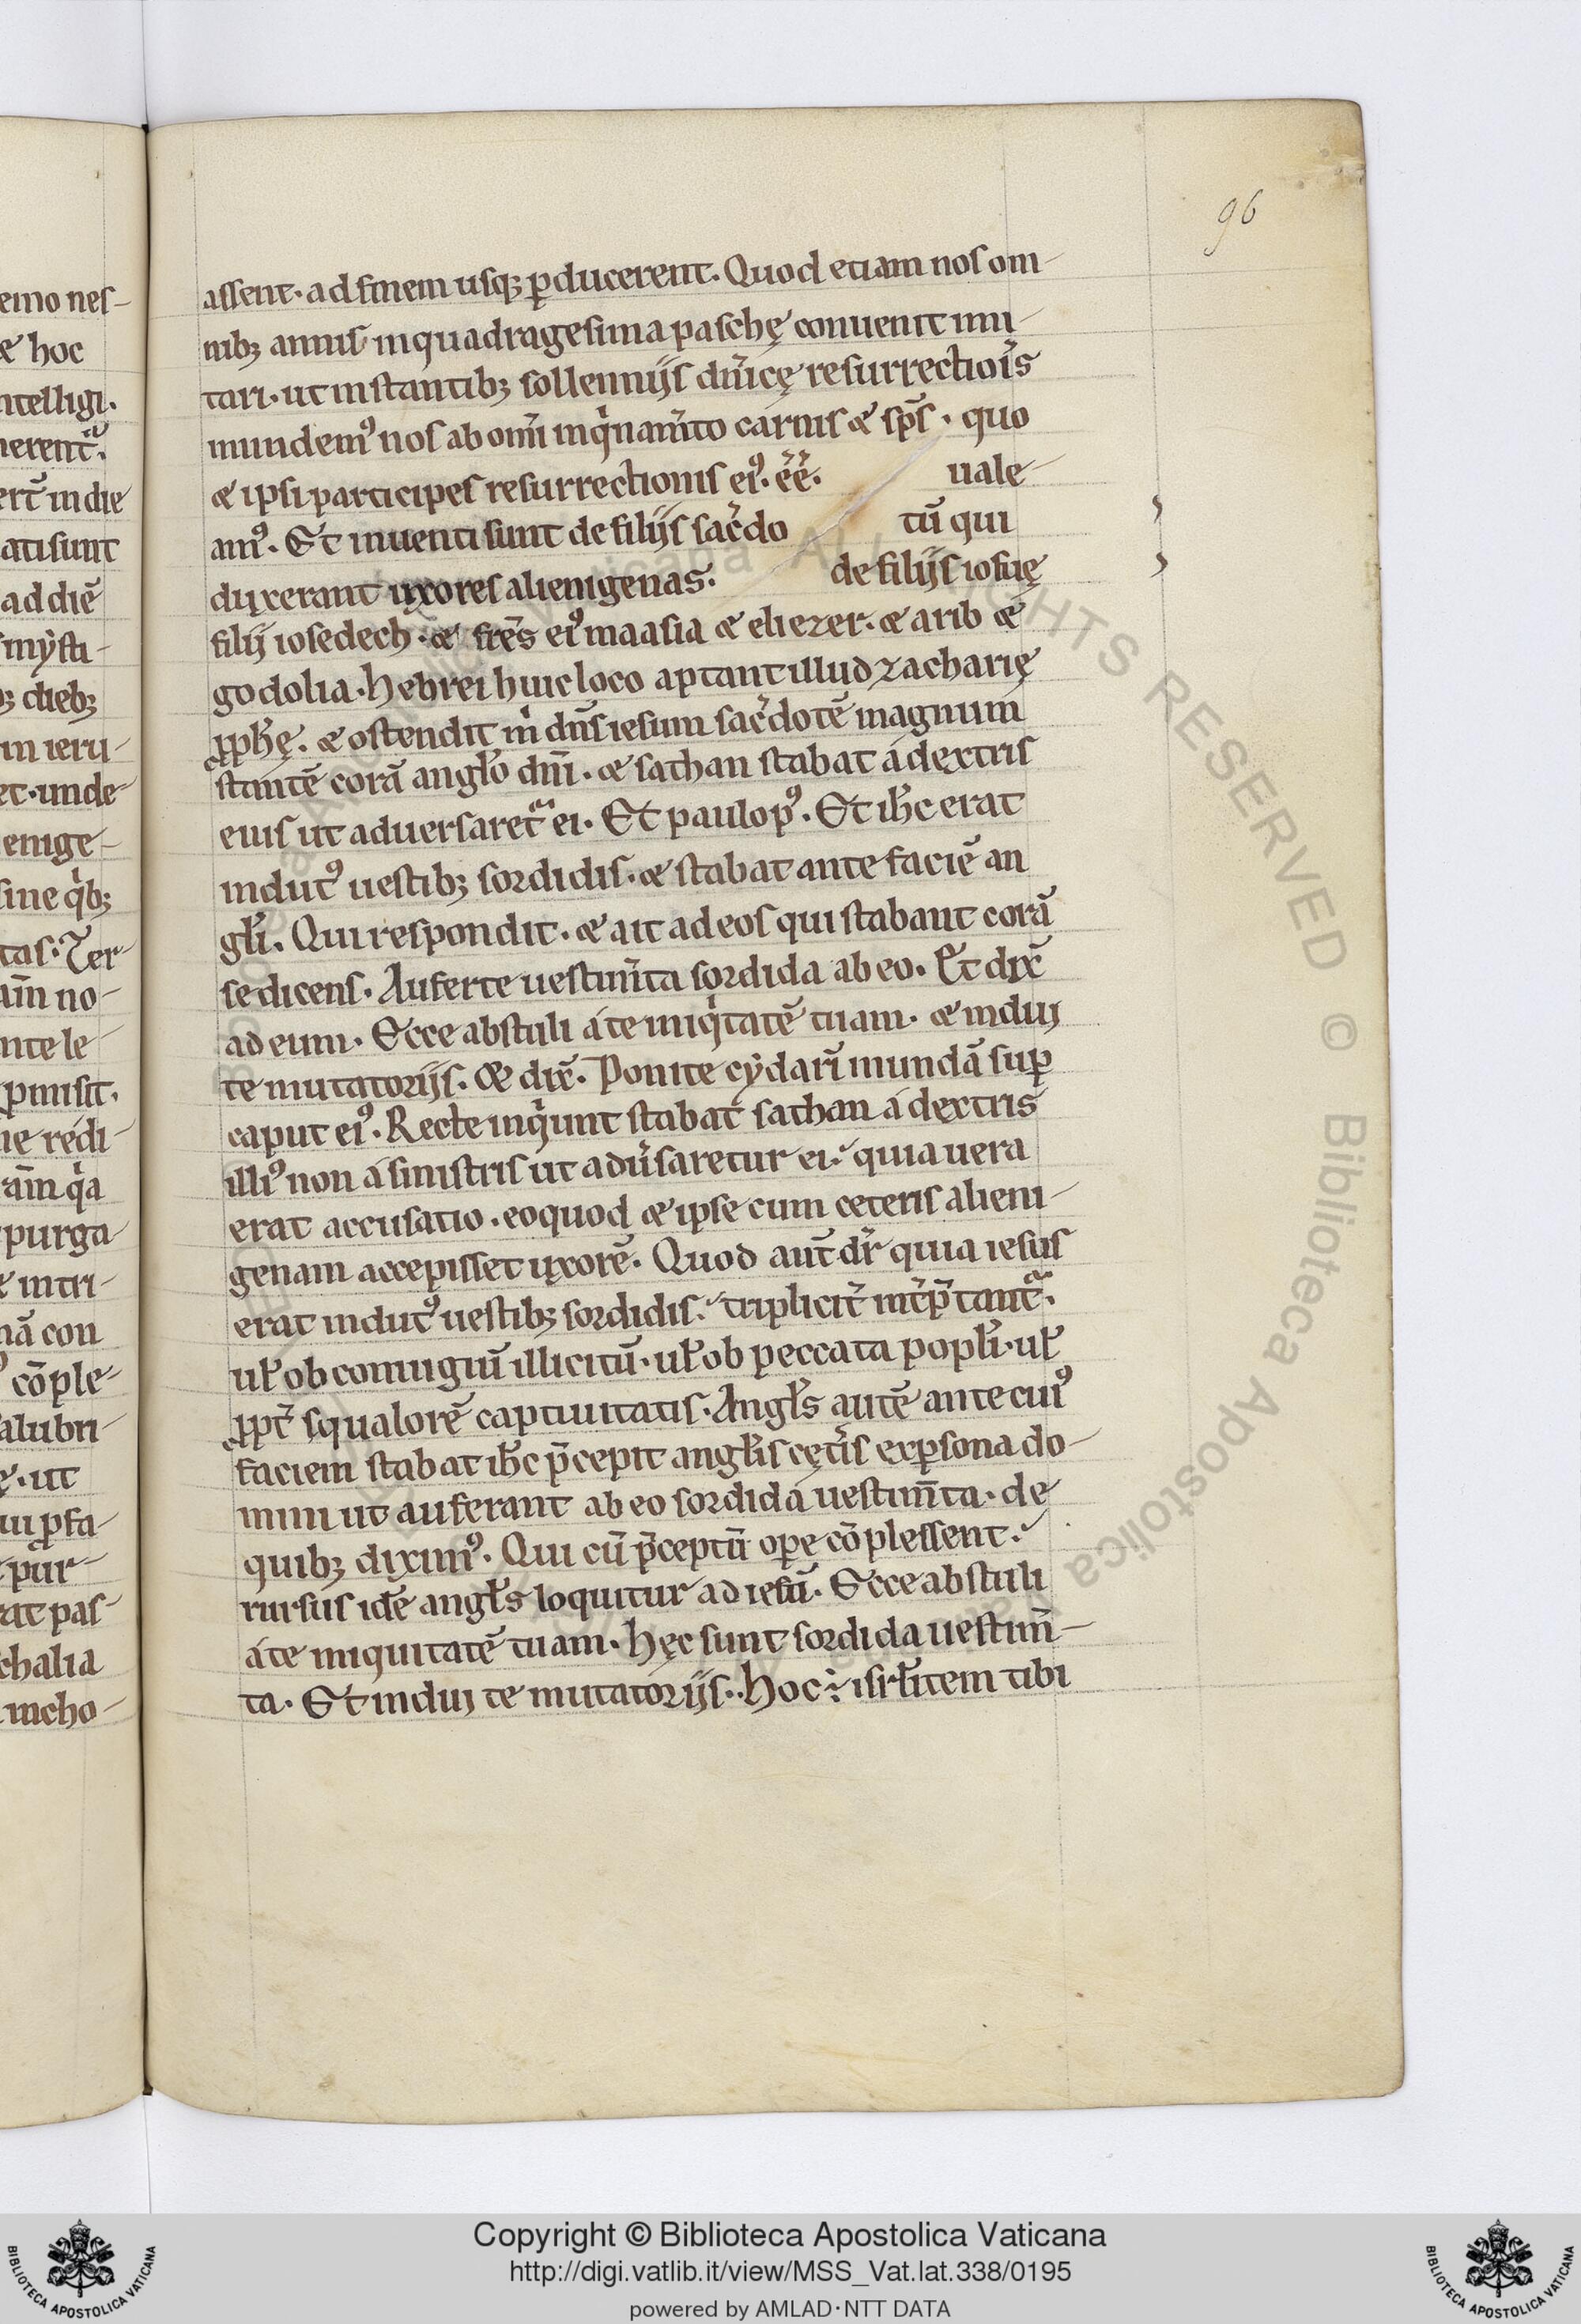 96
emo nes-
& hoc
ntelligi.
herent᷑.
ert̄ in die
ati sunt
ad diē
mẏsti-
ꝫ diebꝫ
in ieru-
et. unde
enige-
sine qͥbꝫ
tas. Ter-
am̄ no-
nte le
p̱misit.
ne redi-
am̄ qͥa
purga-
& intri-
nā con
cōple-
alubri-
ę. ut
ui ꝓfa-
pur-
rat pas-
chalia
incho-
assent. ad finem usqꝫ ꝑducerent. Quod etiam nos om-
nibꝫ annis in quadragesima paschę conuenit imi-
tari. ut instantibꝫ sollennijs dn̄icę resurrectiois̄
mundemꝰ nos ab om̄i inqͥnam̄to carnis & sps̄. quo
& ipsi participes resurrectionis eiꝰ. ēē. uale-
amꝰ. Et inuenti sunt de filijs sac̄do tū qui
duxerant uxores alienigenas. de filijs iosuę
filij iosedech. & fr̄es eiꝰ maasia & eliezer. & arib &
godolia. Hebrei huic loco aptant illud zacharię
ꝓph̄ę. & ostendit m̍ dn̄s iesum sac̄dotē magnum
stantē corā angl̄o dn̄i. & sathan stabat á dextris
eius ut aduersaret᷑ ei. Et paulo pꝰ. Et ih̄c erat
indutꝰ uestibꝫ sordidis. & stabat ante faciē an
gl̄i. Qui respondit. & ait ad eos qui stabant corā
se dicens. Auferte uestim̄ta sordida ab eo. Et dix̄
ad eum. Ecce abstuli á te iniqͥtatē tuam. & indui
te mutatorijs. & dix̄. Ponite cẏdarī mundā suꝑ
caput eiꝰ. Recte inqͥunt stabat sathan á dextris
illiꝰ non á sinistris ut adu̍saretur ei. quia uera
erat accusatio. eo quod & ipse cum ceteris alieni-
genam accepisset uxorē. Quod aut̄ dr̄ quia iesus
erat indutꝰ uestibꝫ sordidis. triplicit̄ int̄p̄tant᷑.
ul̄ ob coniugiū illicitū. ul̄ ob peccata popl̄i. ul̄
ꝓpt̄ squalorē captiuitatis. Angl̄s autē ante cuiꝰ
faciem stabat ih̄c p̄cepit angl̄is cęt̄is ex ꝑsona do-
mini ut auferant ab eo sordida uestim̄ta. de
quibꝫ diximꝰ. Qui cū p̄ceptū oꝑe cōplessent.
rursus idē angl̄s loquitur ad iesū. Ecce abstuli
á te iniquitatē tuam. hęc sunt sordida uestim̄-
ta. Et indui te mutatorijs. hoc ÷ isrl̄item tibi
Copyright © Biblioteca Apostolica Vaticana
http://digi.vatlib.it/view/MSS_Vat.lat.338/0195
powered by AMLAD·NTT DATA
BIBLIOTECA APOSTOLICA VATICANA
BIBLIOTECA APOSTOLICA VATICANA